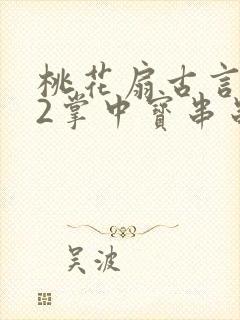 桃花扇古言
2掌中寳串
吴波